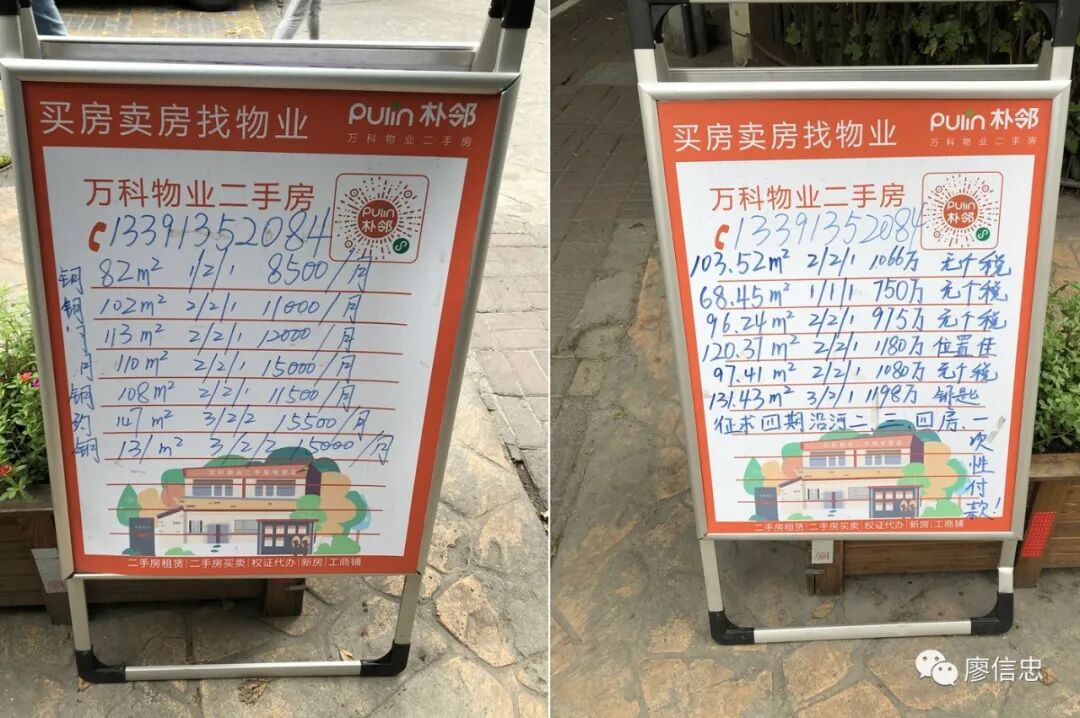 买房卖房找物业
PUlin 朴邻
万科物业二手房
万科物业二手房
PUlin
朴邻
13391352084
钥 82m² 1/2/1 8500/月
钥 102m² 2/2/1 11000/月
113m² 2/2/1 12000/月
110m² 2/2/1 15000/月
钥 108m² 2/2/1 11500/月
约 147m² 3/2/2 15500/月
钥 131m² 3/2/2 15000/月
万科物业二手房专营店
二手房租赁|二手房买卖|权证代办|新房|工商铺
买房卖房找物业
PUlin 朴邻
万科物业二手房
万科物业二手房
PUlin
朴邻
13391352084
103.52m² 2/2/1 1066万 无个税
68.45m² 1/1/1 750万 无个税
96.24m² 2/2/1 975万 无个税
120.37m² 2/2/1 1180万 位置佳
97.41m² 2/2/1 1080万 无个税
131.43m² 3/2/1 1198万 钥匙
征求四期沿河二、三、四房、一次性付款!
万科物业二手房专营店
二手房租赁|二手房买卖|权证代办|新房|工商铺
廖信忠